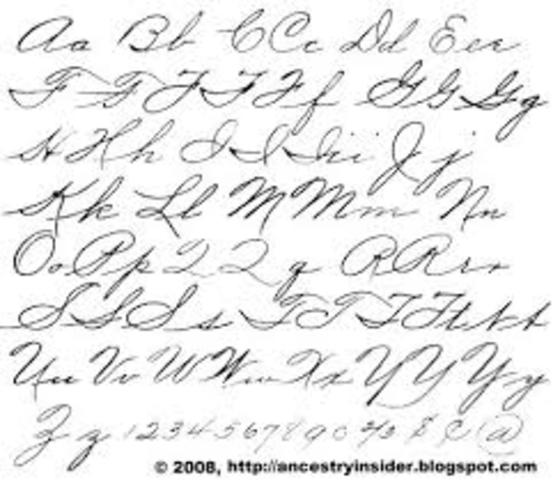 A a B b C C c D d E e e
F F F F F f G G G g
H H h I I I i i J j
K k L l M M m N n
O o P p Q Q q R R r r
S S S s T T T T t t t
U u V v W W w X x Y Y Y y
Z z 1 2 3 4 5 6 7 8 9 0 $ ¢ @
© 2008, http://ancestryinsider.blogspot.com